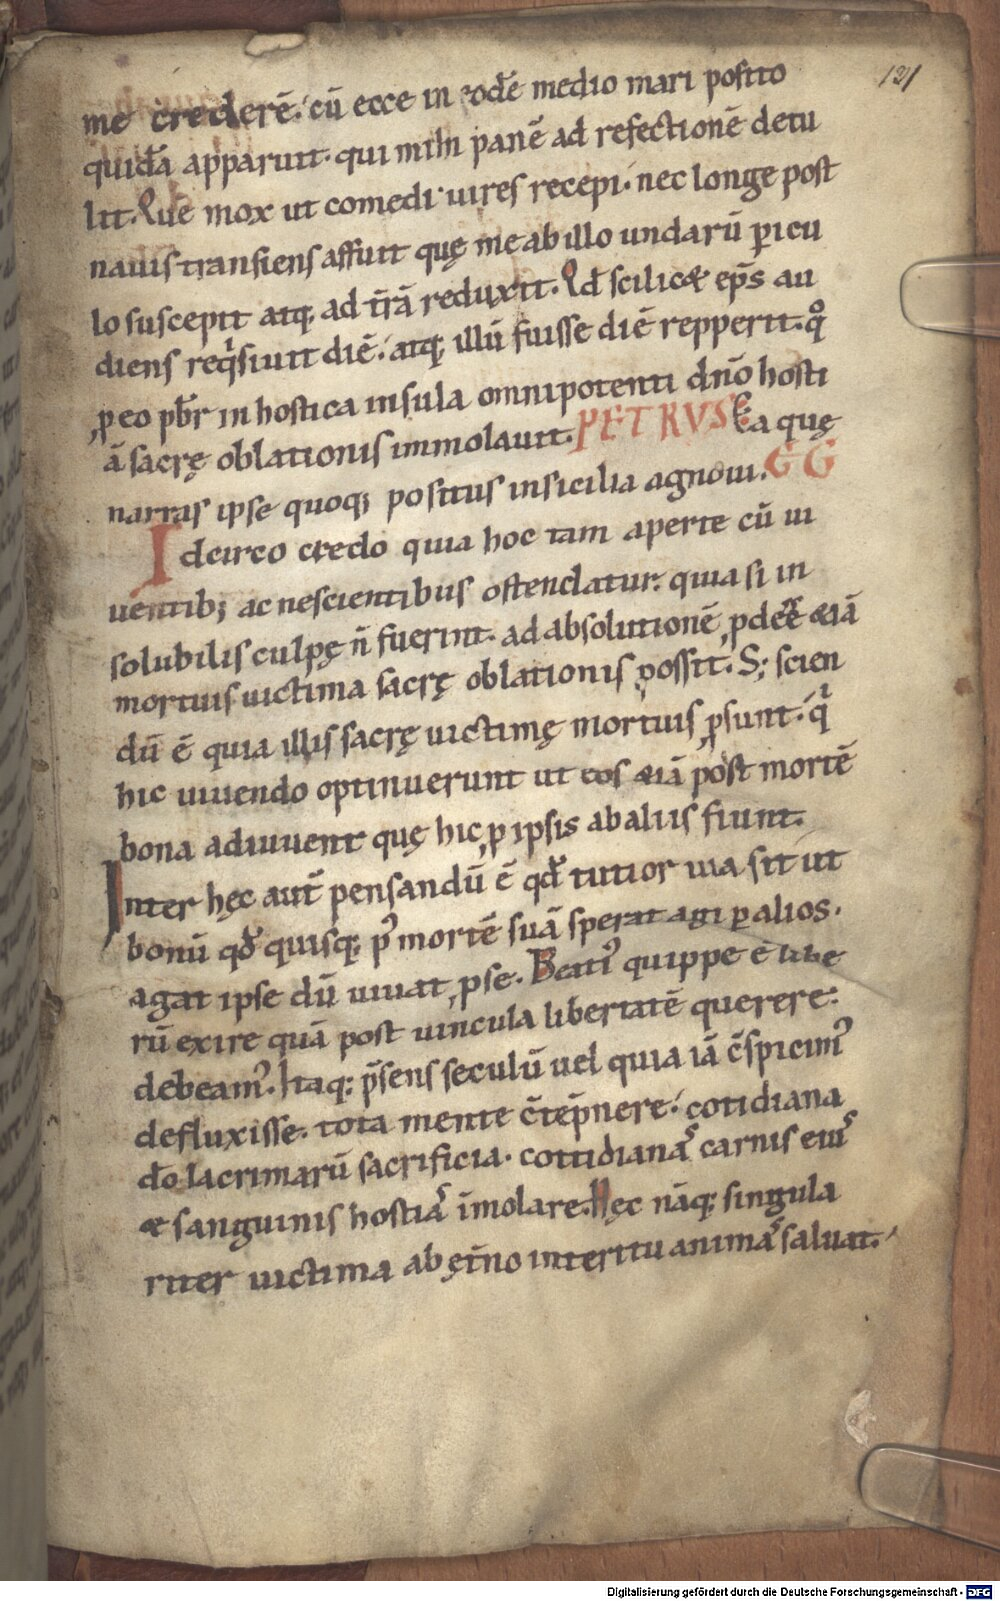 121
me crederē. cū ecce in eodē medio mari posito
quidā apparuit. qui mihi panē ad refectionē detu
lit. Quē mox ut comedi uires recepi. nec longe post
nauis transiens affuit quę me ab illo undarū picu
lo suscepit atq; ad tr̄ā reduxit. Qd̄ scilicet ep̄s au
diens reqͥsiuit diē. atq; illū fuisse diē repperit. qͦ
p eo pb̄r in hostica insula omnipotenti dn̄o hosti
ā sacrę oblationis immolauit. PETRVS Ea quę
narras ipse quoq; positus in sicilia agnoui. GG
Idcirco credo quia hoc tam aperte cū ui
uentib; ac nescientibus ostendatur. quia si in
solubilis culpę n̄ fuerint. ad absolutionē pdeē etiā
mortuis uictima sacrę oblationis possit. S; scien
dū ē quia illis sacrę uictimę mortuis psunt. qͥ
hic uiuendo optinuerunt ut eos etiā post mortē
bona adiuuent quę hic p ipsis ab aliis fiunt.
Inter hęc aut̄ pensandū ē qd̄ tutior uia sit ut
bonū qd̄ quisq; pꝰ mortē suā sperat agi p alios.
agat ipse dū uiuat p se. Beatiꝰ quippe ē libe
rū exire quā post uincula libertatē querere.
debeamꝰ. Itaq; p̄sens seculū uel quia iā c̄spicimꝰ
defluxisse. tota mente c̄tēpnere. cotidiana
dō lacrimarū sacrificia. cottidianas carnis eiuꝰ
et sanguinis hostias īmolare. Hęc nāq; singula
riter uictima ab ęt̄no interitu animas saluat.
Digitalisierung gefördert durch die Deutsche Forschungsgemeinschaft - DFG